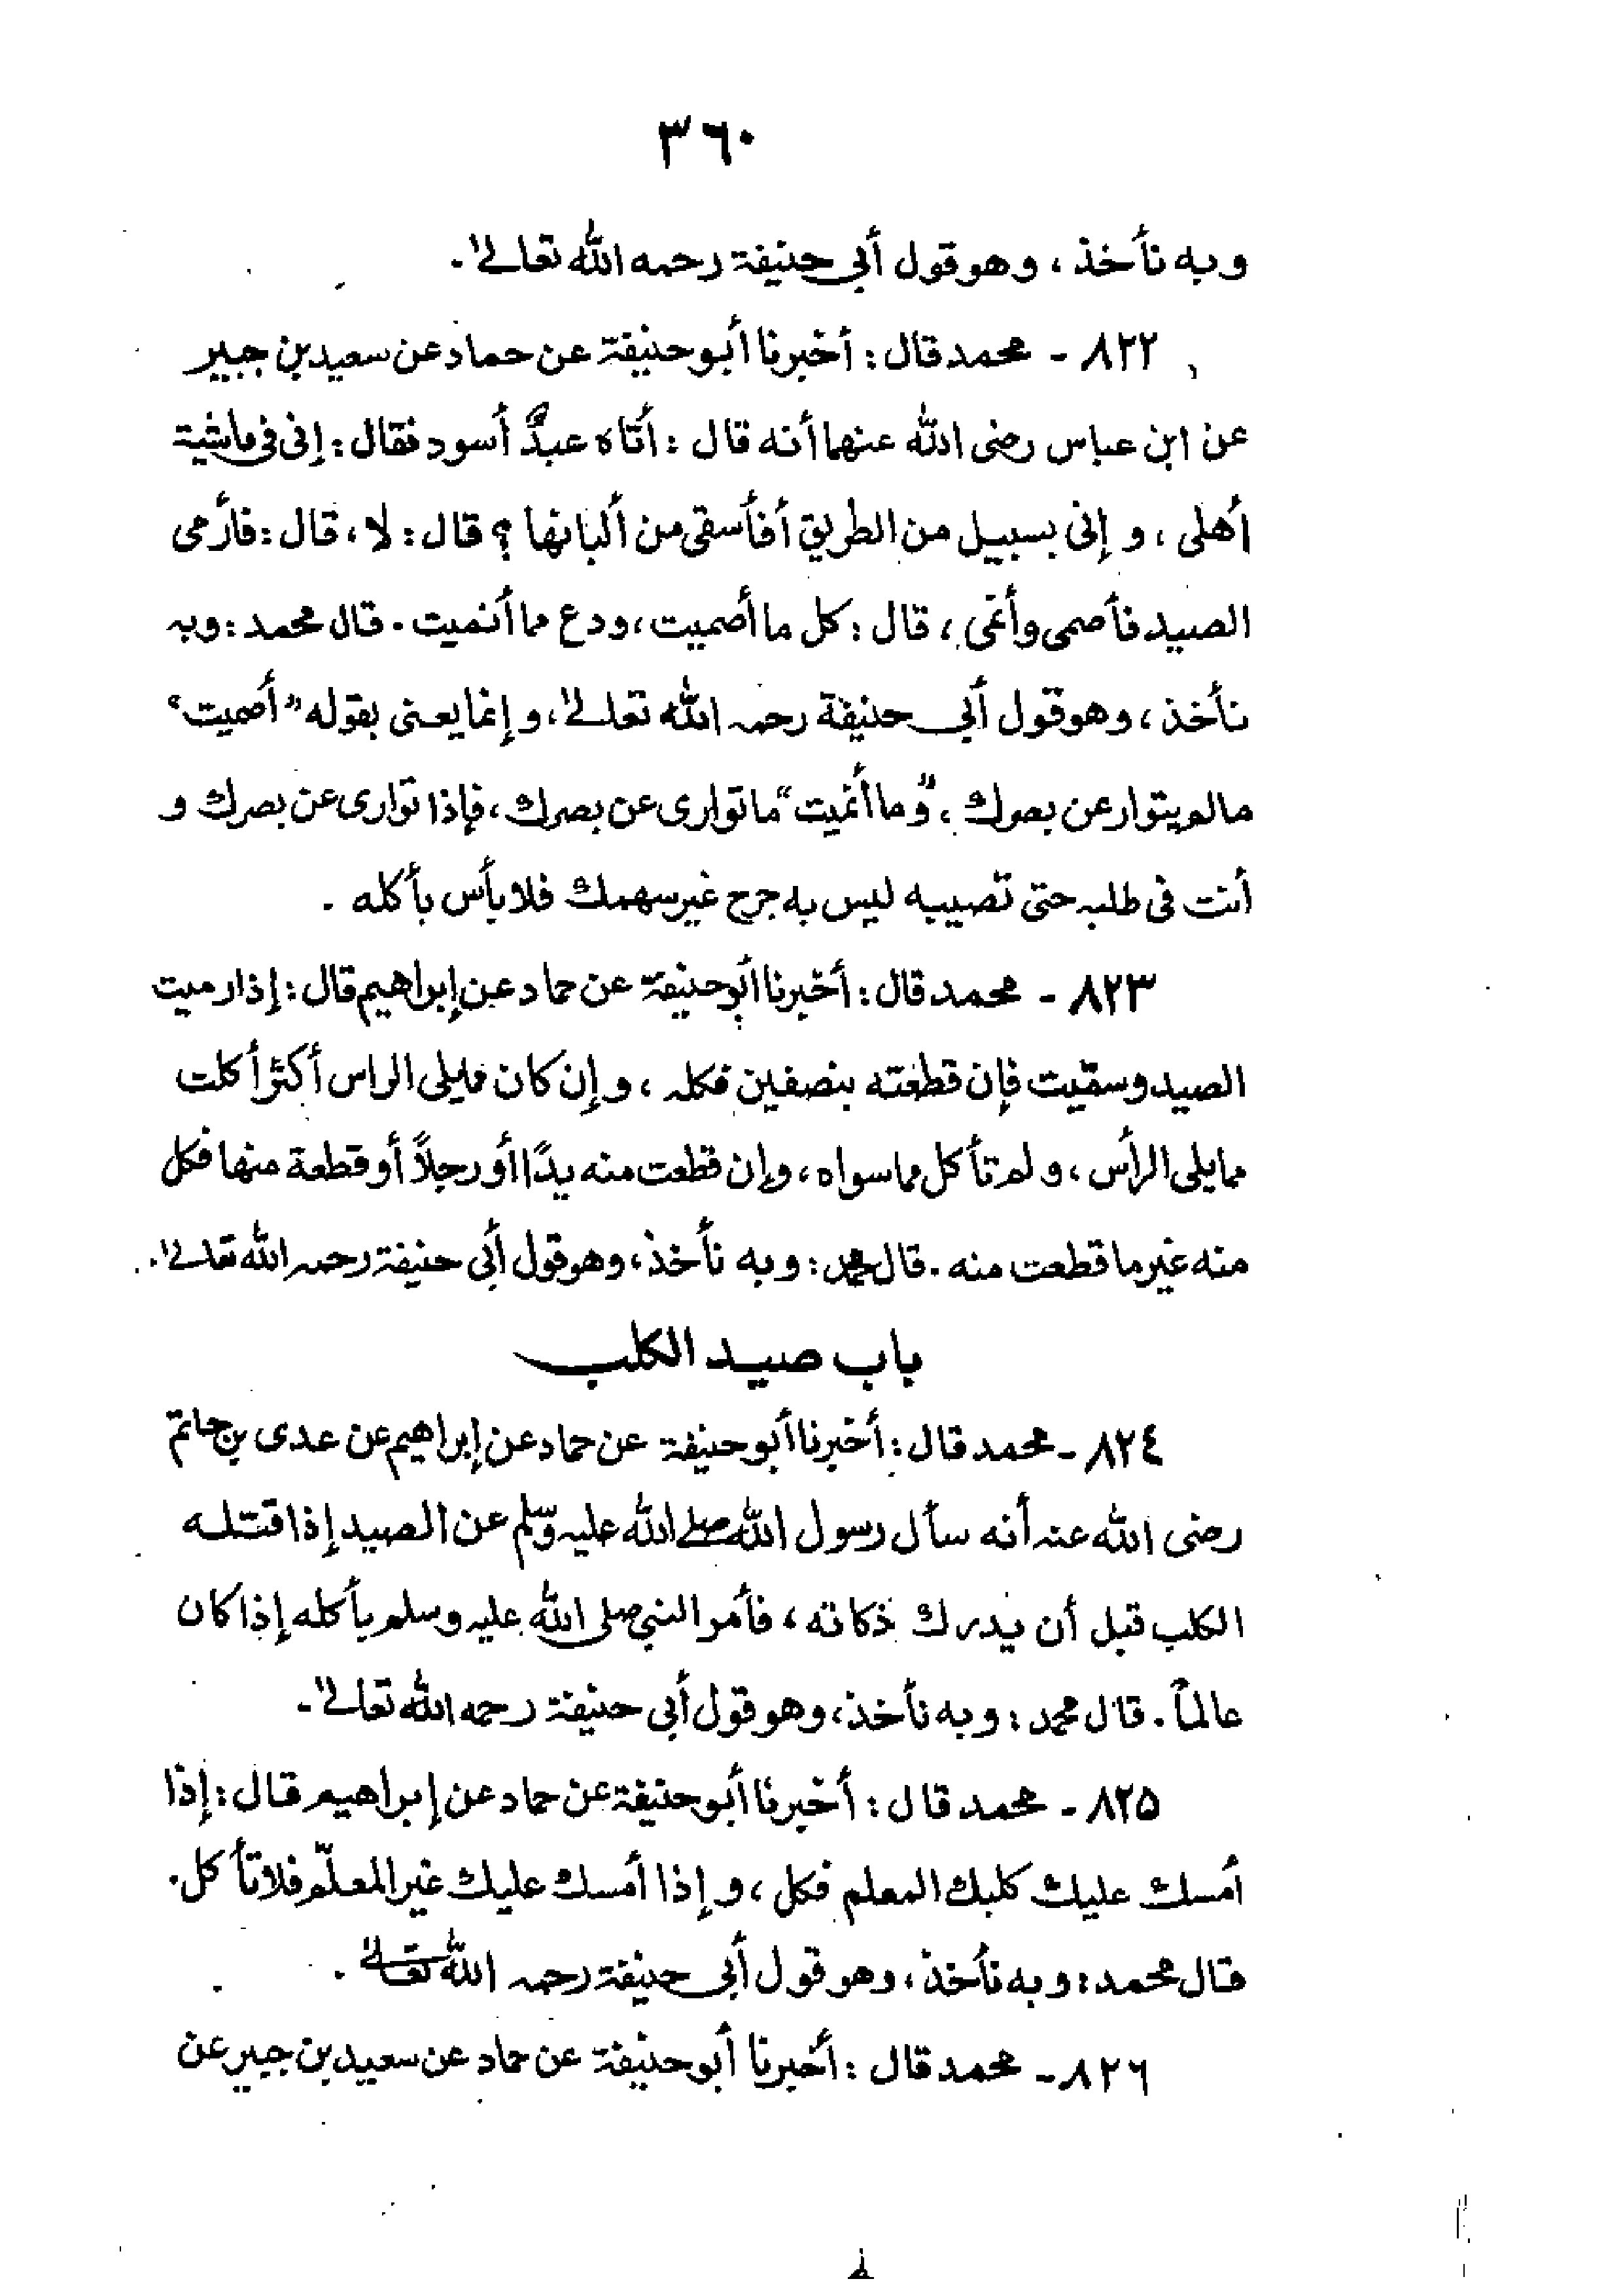 ٣٦٠
وبه نأخذ، وهو قول أبي حنيفة رحمه الله تعالى.
٨٢٢ - محمد قال: أخبرنا أبو حنيفة عن حماد عن سعيد بن جبير
عن ابن عباس رضى الله عنهما أنه قال: أتاه عبدٌ أسود فقال: إنى فى ماشية
أهلى، و إنى بسبيل من الطريق أفأسقى من ألبانها؟ قال: لا، قال: فأرمى
الصيد فأصمى وأنمى، قال: كل ما أصميت، ودع ما أنميت. قال محمد: وبه
نأخذ، وهو قول أبي حنيفة رحمه الله تعالى، و إنما يعنى بقوله "أصميت"
مالم يتوار عن بصرك، "وما أنميت" ما توارى عن بصرك، فإذا توارى عن بصرك و
أنت فى طلبه حتى تصيبه ليس به جرح غير سهمك فلا بأس بأكله.
٨٢٣ - محمد قال: أخبرنا أبو حنيفة عن حماد عن إبراهيم قال: إذا رميت
الصيد وسمّيت فإن قطعته بنصفين فكله، و إن كان مايلى الراس أكثر أكلت
مما يلى الرأس، و لم تأكل مما سواه، وإن قطعت منه يدًا أو رجلاً أو قطعة منها فكل
منه غير ما قطعت منه. قال محمد: وبه نأخذ، وهو قول أبى حنيفة رحمه الله تعالى.
باب صيد الكلب
٨٢٤ - محمد قال: أخبرنا أبو حنيفة عن حماد عن إبراهيم عن عدى بن حاتم
رضى الله عنه أنه سأل رسول الله صلى الله عليه وسلم عن الصيد إذا قتله
الكلب قبل أن يدرك ذكاته، فأمر النبي صلى الله عليه وسلم بأكله إذا كان
عالماً. قال محمد: وبه نأخذ، وهو قول أبى حنيفة رحمه الله تعالى -
٨٢٥ - محمد قال: أخبرنا أبو حنيفة عن حماد عن إبراهيم قال: إذا
أمسك عليك كلبك المعلم فكل، و إذا أمسك عليك غير المعلّم فلا تأكل.
قال محمد: وبه نأخذ، وهو قول أبي حنيفة رحمه الله تعالى.
٨٢٦ - محمد قال: أخبرنا أبو حنيفة عن حماد عن سعيد بن جبير عن